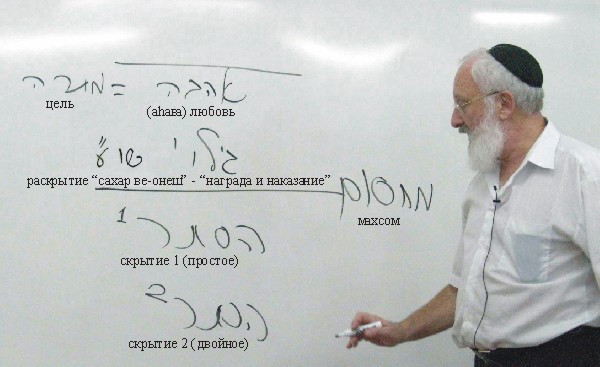 אהבה = מטרה
цель (аhава) любовь
גילוי שו"ע
раскрытие “сахар ве-онеш” - “награда и наказание”
מחסום
махсом
הסתר 1
скрытие 1 (простое)
הסתר 2
скрытие 2 (двойное)